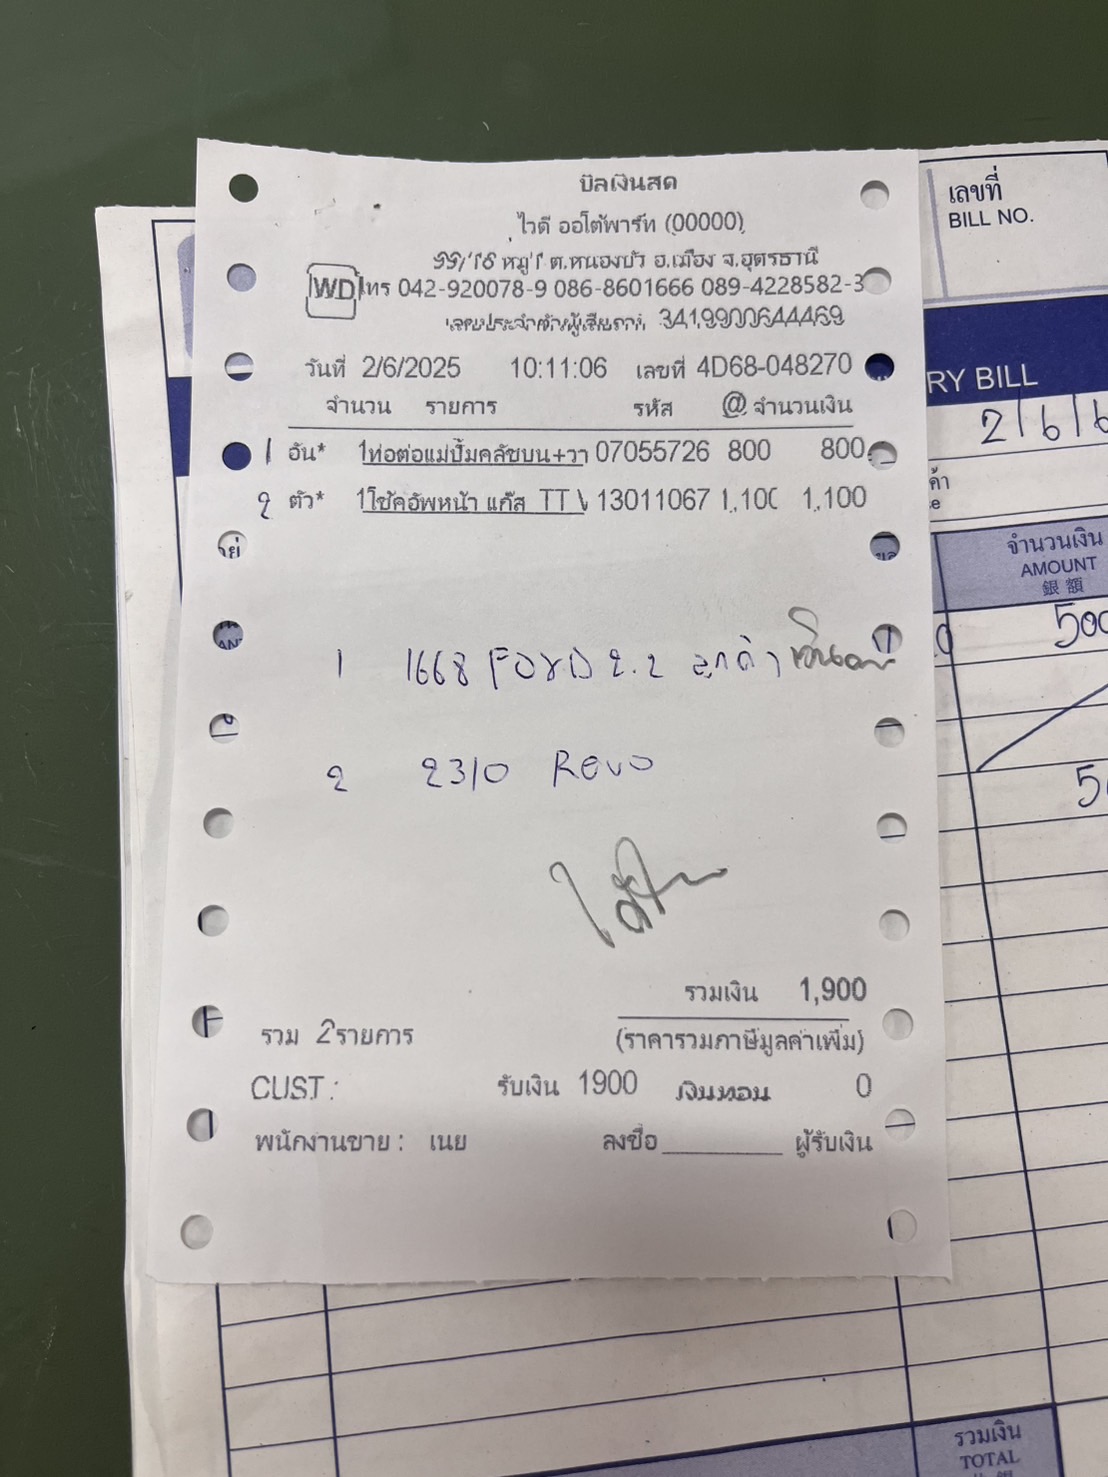 บิลเงินสด
ไวดี ออโต้พาร์ท (00000)
99/18 หมู่1 ต.หนองบัว อ.เมือง จ.อุดรธานี
WD โทร 042-920078-9 086-8601666 089-4228582-3
เลขประจำตัวผู้เสียภาษี 3419900644469
วันที่ 2/6/2025 10:11:06 เลขที่ 4D68-048270
จำนวน รายการ รหัส @ จำนวนเงิน
1 อัน* 1ท่อต่อแม่ปั๊มคลัชบน+วา 07055726 800 800
2 ตัว* 1โช้คอัพหน้า แก๊ส TT 13011067 1,100 1,100
1 1668 FORD 2.2 ลูกค้า
2 2310 Revo
รวมเงิน 1,900
รวม 2รายการ (ราคารวมภาษีมูลค่าเพิ่ม)
CUST : รับเงิน 1900 เงินทอน 0
พนักงานขาย : เนย ลงชื่อ ผู้รับเงิน
เลขที่
BILL NO.
RY BILL
2/6/6
ค้า
จำนวนเงิน
AMOUNT
銀額
500
รวมเงิน
TOTAL